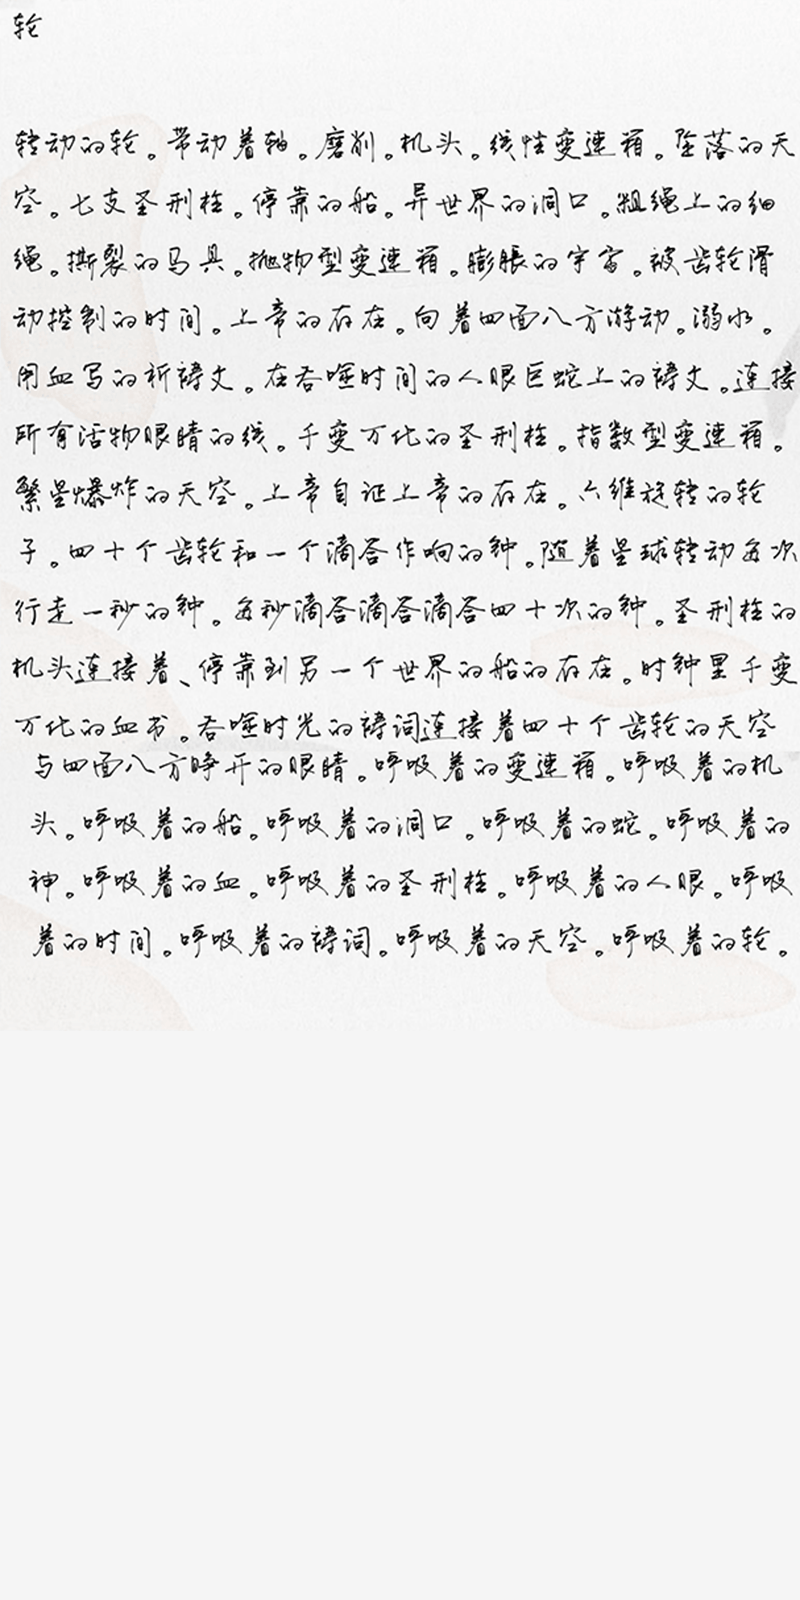 轮
转动的轮。带动着轴。磨削。机头。线性变速箱。坠落的天
空。七支圣刑栓。停靠的船。异世界的洞口。粗绳上的细
绳。撕裂的马具。抛物型变速箱。膨胀的宇宙。被齿轮滑
动控制的时间。上帝的存在。向着四面八方游动。溺水。
用血写的祈祷文。在吞噬时间的人眼巨蛇上的祷文。连接
所有活物眼睛的线。千变万化的圣刑栓。指数型变速箱。
繁星爆炸的天空。上帝自证上帝的存在。六维旋转的轮
子。四十个齿轮和一个滴答作响的钟。随着星球转动每次
行走一秒的钟。每秒滴答滴答滴答四十次的钟。圣刑栓的
机头连接着、停靠到另一个世界的船的存在。时钟里千变
万化的血书。吞噬时光的祷词连接着四十个齿轮的天空
与四面八方睁开的眼睛。呼吸着的变速箱。呼吸着的机
头。呼吸着的船。呼吸着的洞口。呼吸着的蛇。呼吸着的
神。呼吸着的血。呼吸着的圣刑栓。呼吸着的人眼。呼吸
着的时间。呼吸着的祷词。呼吸着的天空。呼吸着的轮。